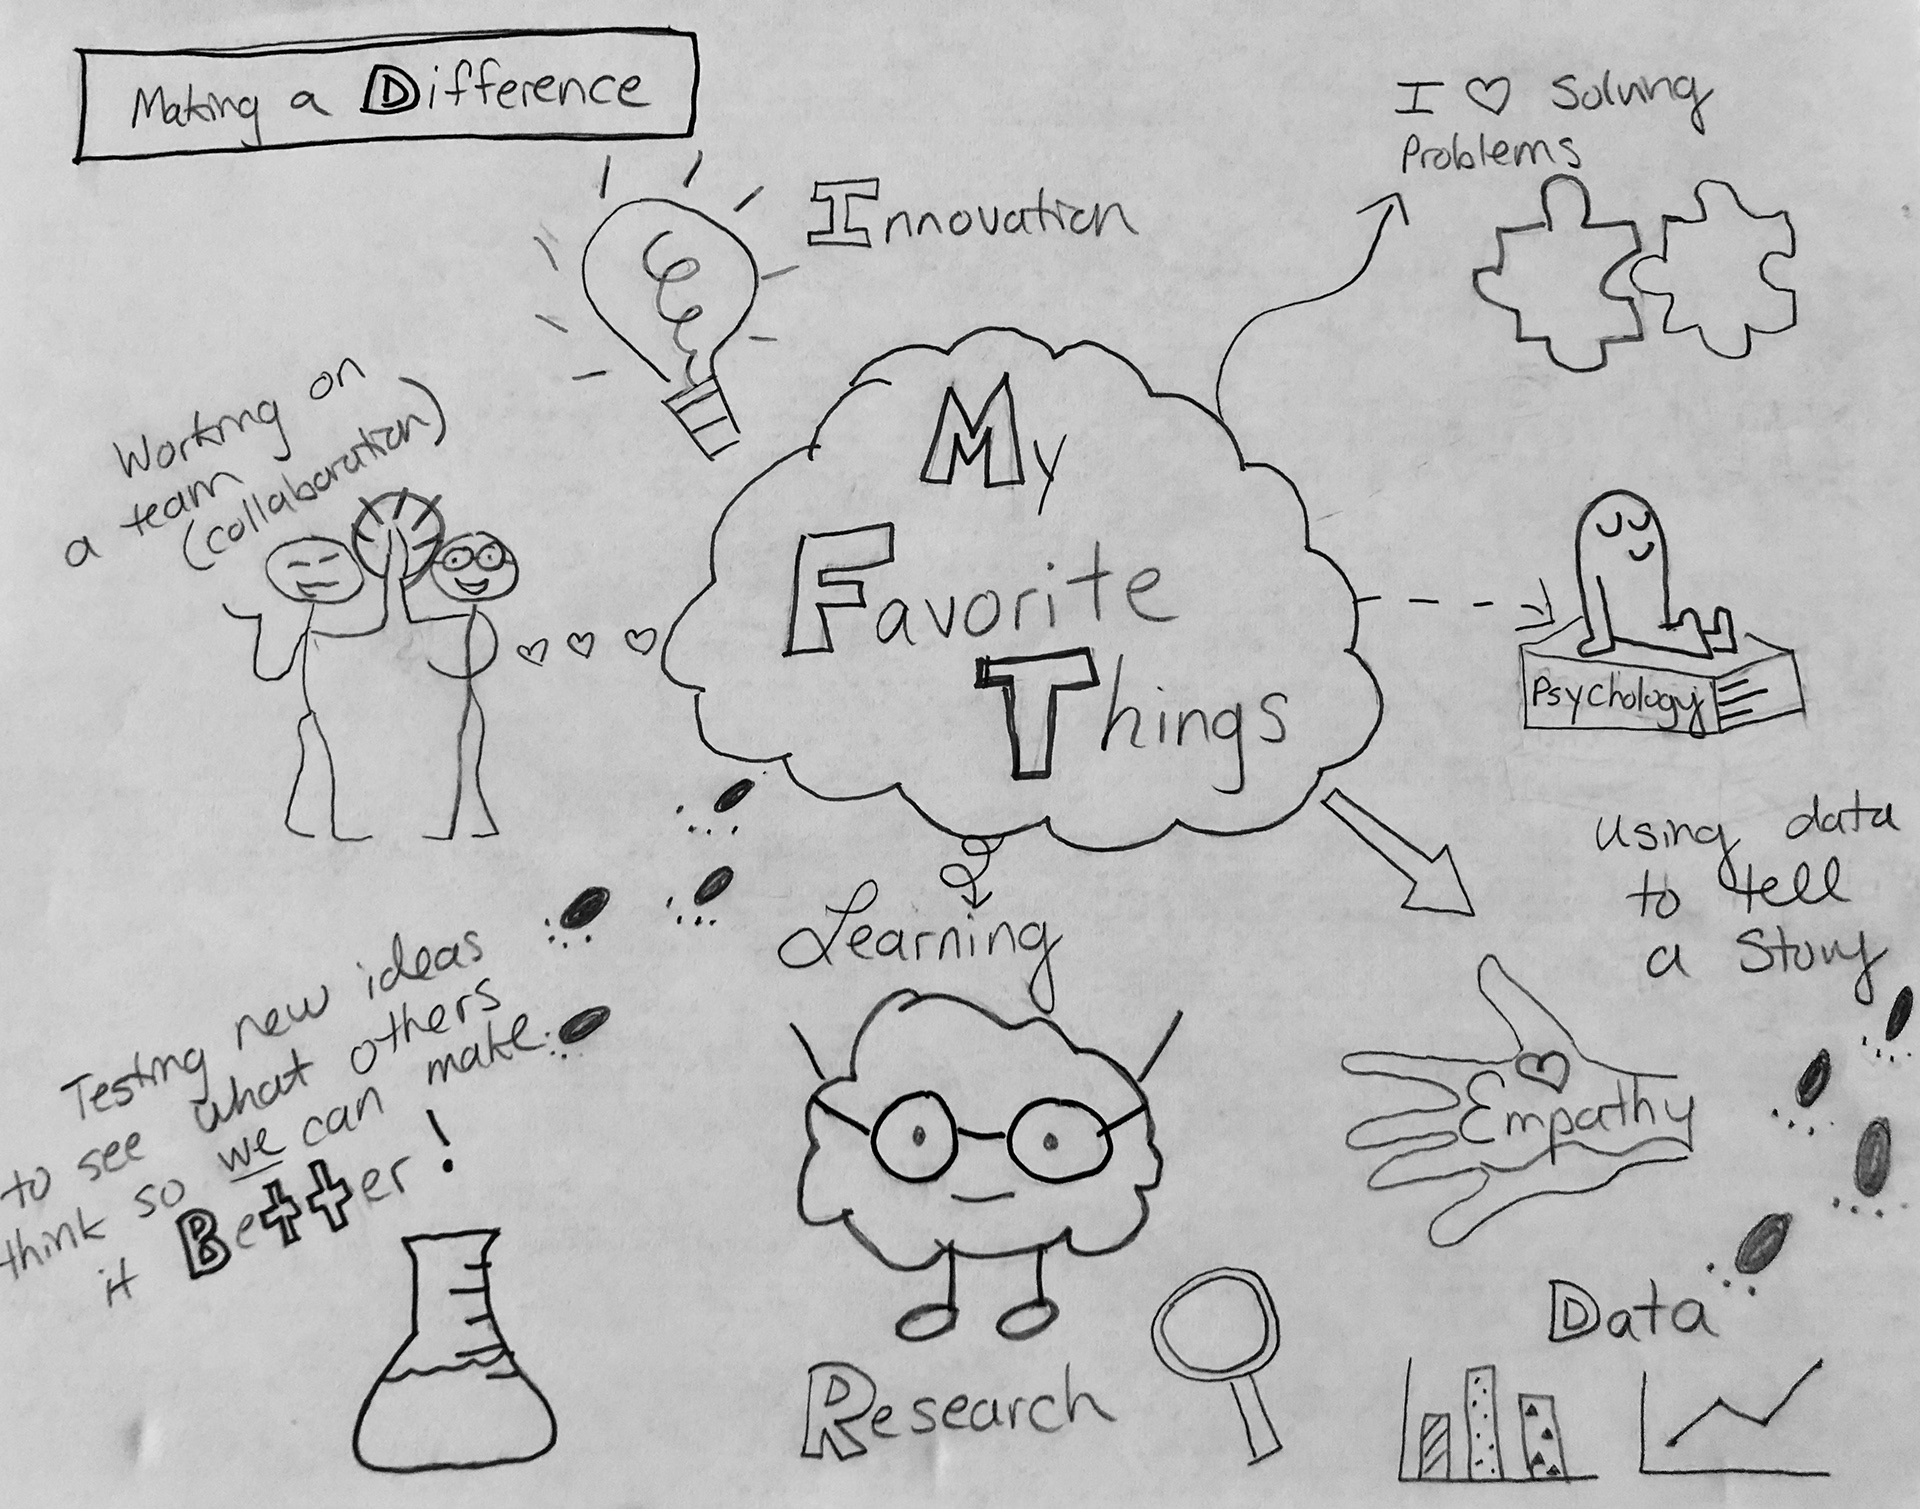 Making a Difference
Innovation
I ♡ Solving
Problems
Working on
a team
(collaboration)
My
Favorite
Things
Psychology
using data
to tell
a Story
Learning
Testing new ideas
to see what others
think so we can make
it Better!
Empathy
Data
Research